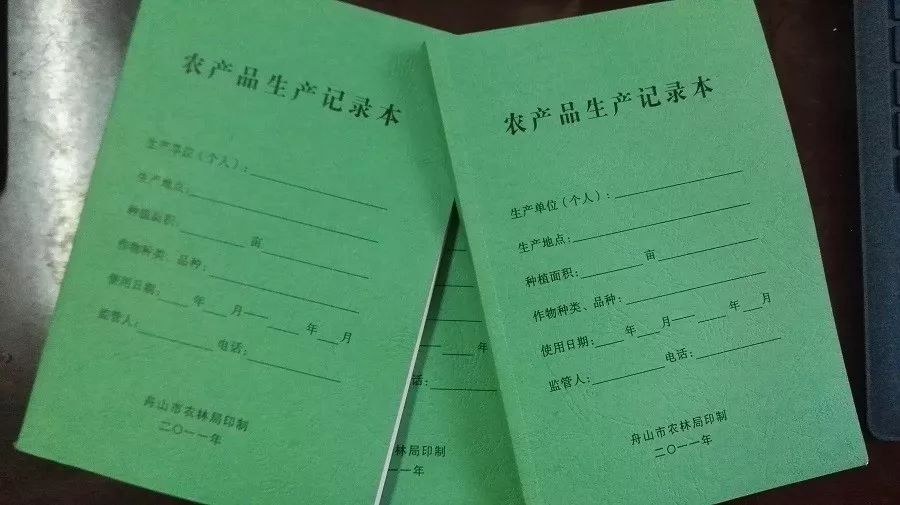 农产品生产记录本
生产单位（个人）：
生产地点：
种植面积： 亩
作物种类、品种：
使用日期： 年 月— 年 月
监管人： 电话：
舟山市农林局印制
二〇一一年
农产品生产记录本
生产单位（个人）：
生产地点：
种植面积： 亩
作物种类、品种：
使用日期： 年 月— 年 月
监管人： 电话：
舟山市农林局印制
二〇一一年
年 月
话：
林局印制
一年